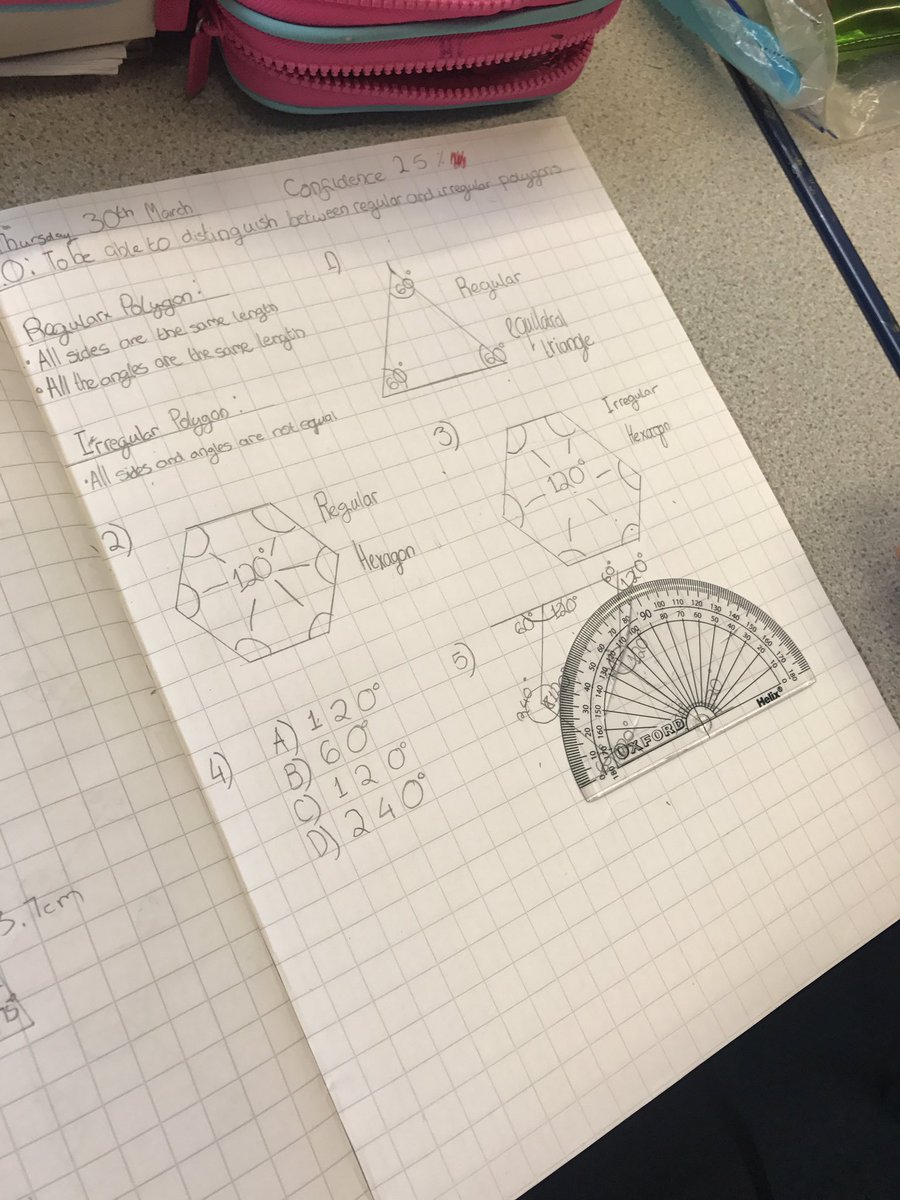 Confidence 25%
Thursday 30th March
.O: To be able to distinguish between regular and irregular polygons
Regular Polygon:
• All sides are the same length
• All the angles are the same length
Irregular Polygon:
• All sides and angles are not equal
1)
60°
60°
60°
Regular
equilatral
triangle
2)
120°
Regular
Hexagon
3)
120°
Irregular
Hexagon
4)
A) 120°
B) 60°
C) 120°
D) 240°
5)
60°
120°
60°
120°
240°
OXFORD
Helix®
3.7cm